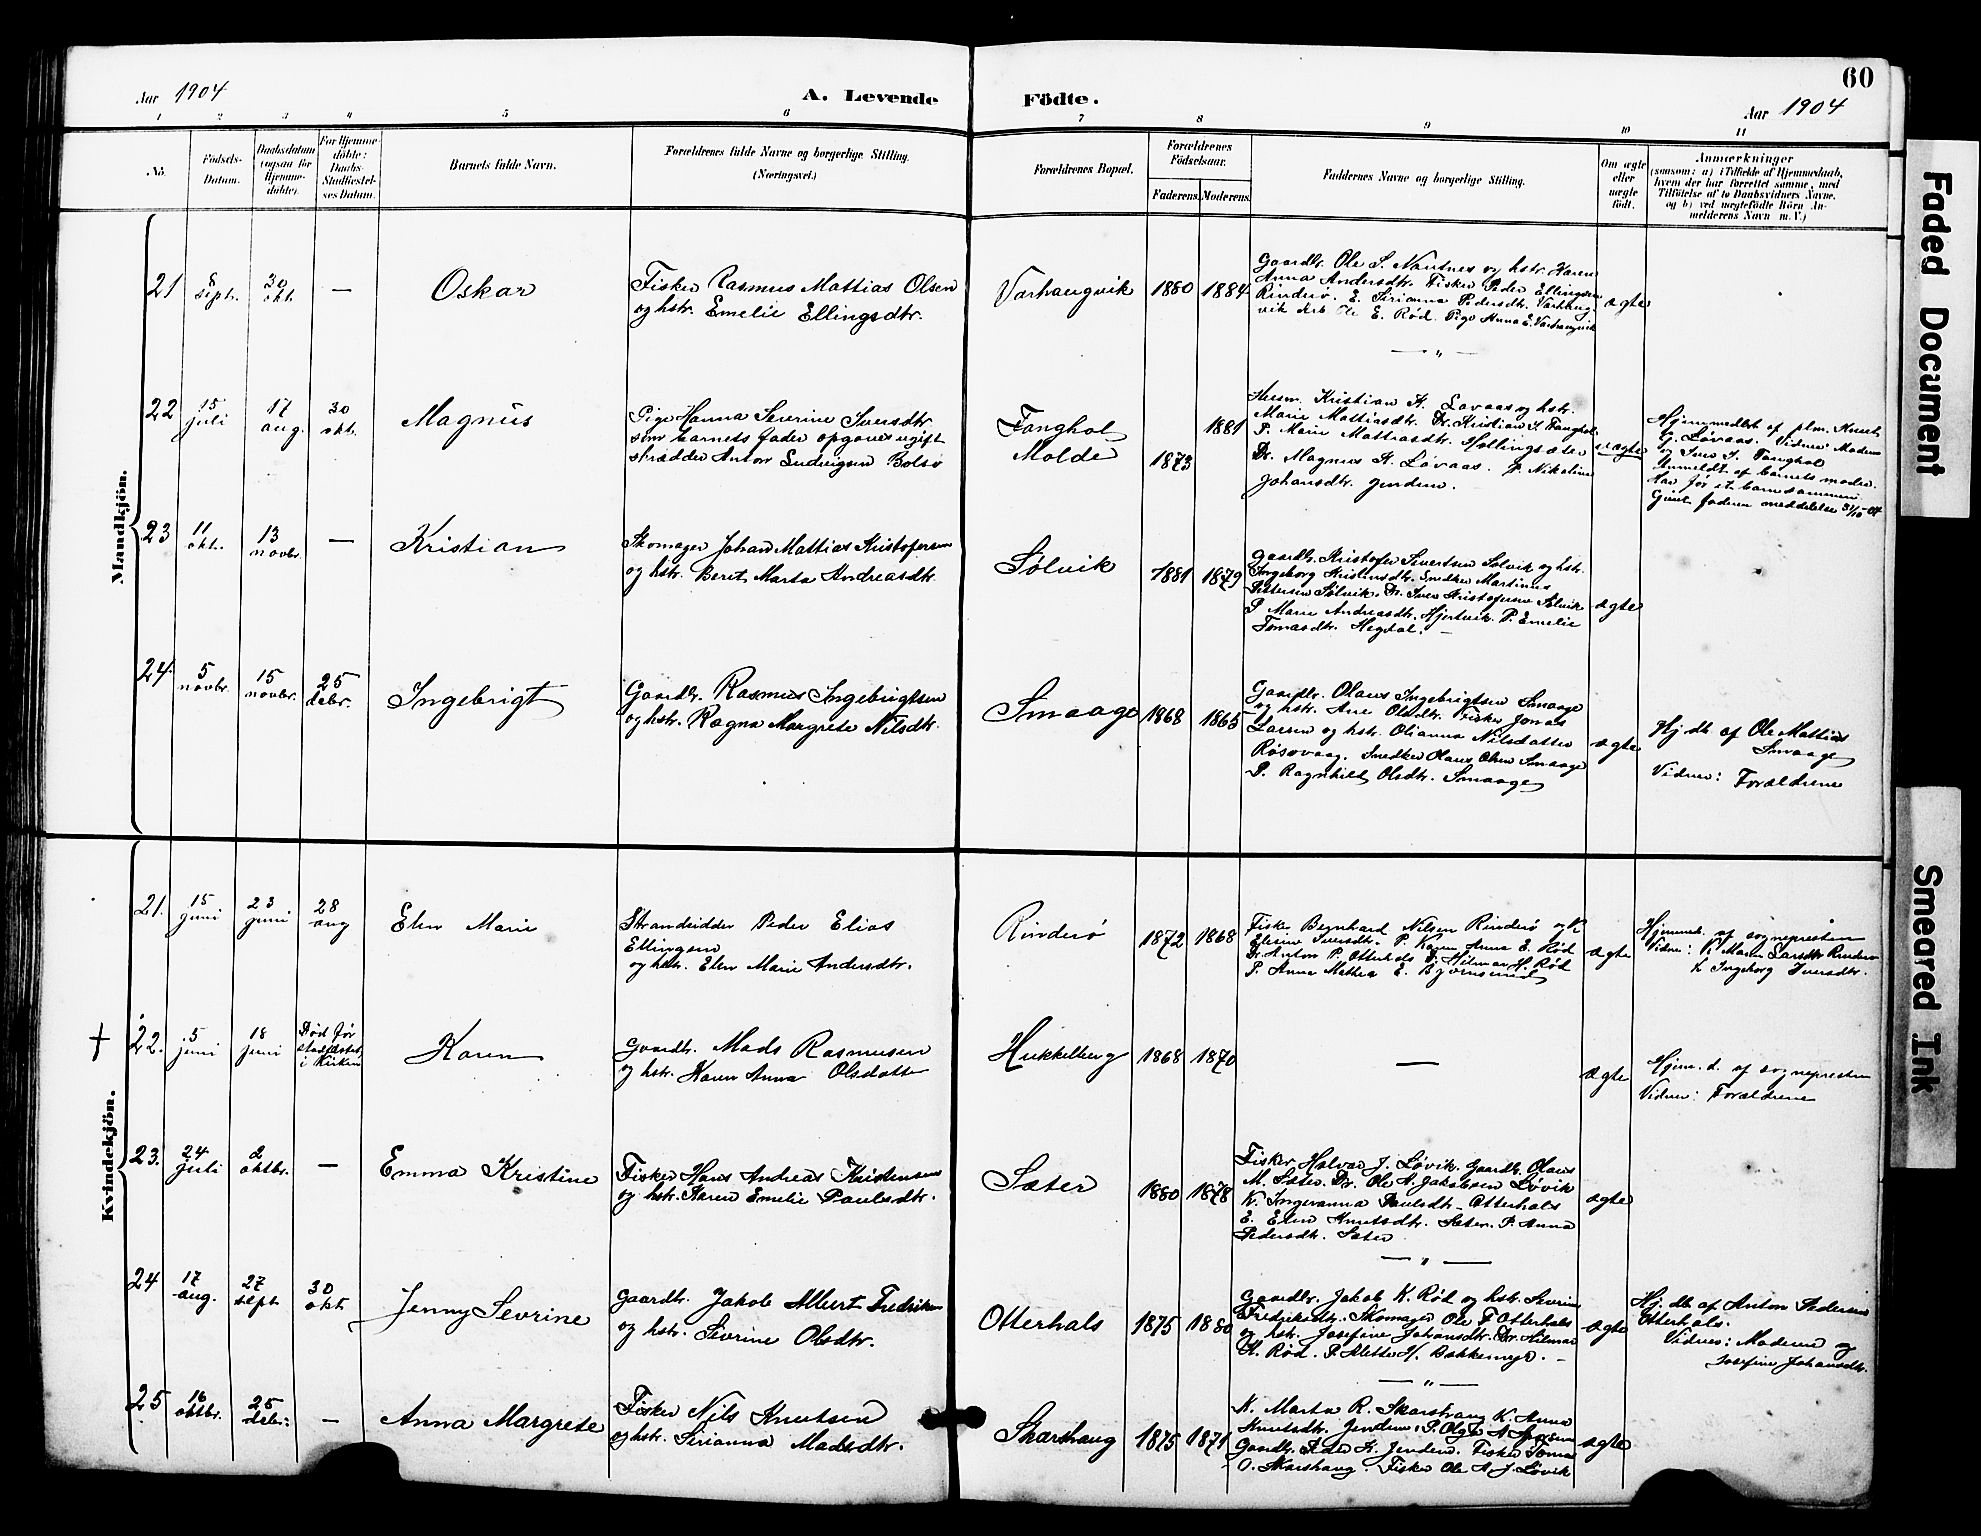 60
Aar 1904
A. Levende Födte.
Aar 1904
1 2 3 4 5 6 7 8 9 10 11
No.
Födsels-
Datum.
Daabsdatum
(ogsaa for
Hjemme-
döbte).
For Hjemme-
döbte:
Daabs-
Stadfæstel-
ses Datum.
Barnets fulde Navn.
Forældrenes fulde Navne og borgerlige Stilling.
(Næringsvei.)
Forældrenes Bopæl.
Forældrenes
Födselsaar.
Faderens. Moderens.
Faddernes Navne og borgerlige Stilling.
Om ægte
eller
uægte
födt.
Anmærkninger
(saasom: a) i Tilfælde af Hjemmedaab,
hvem der har forrettet samme, med
Tilföielse af to Daabsvidners Navne,
og b) ved uægtefödte Börn An-
melderens Navn m. V.)
Mandkjön.
21
8
sept.
30
okt.
—
Oskar
Fisker Rasmus Mattias Olsen
og hstr. Emelie Ellingsdtr.
Varhaugvik
1880 1884
Gaardbr. Ole S. Nautnes og hstr. Karen
Anna Andersdtr. Fisker Peder Ellingsen
Rinderö. E. Sirianna Pedersdtr. Varhaug-
vik Ole E. Rød. Pige Anna E. Varhaugvik
ægte
— " —
22
15
juli
17
aug.
30
okt.
Magnus
Pige Hanna Severine Iversdtr.
som barnets fader opgives ugift
skrædder Anton Bolsö
Tanghol
Molde
1881
1873
Kristian K. Løvaas og hstr.
Marie Mattiasdtr. Dr. Kristian I. Tanghol
P. Marie Mattiasdtr. Hollingsæter
Dr. Magnus K. Løvaas. P. Nikoline
Johansdtr. Jendem.
uægte
Hjemmedøbt af Knut
G. Løvaas. Vidner: Moderen
og Iver I. Tanghol
Anmeldt af barnets moder.
Har før et barn sammen.
Givet faderen meddelelse 31/10 04
23
11
okt.
13
novbr.
—
Kristian
Skomager Johan Mattias Kristofersen
og hstr. Beret Marta Andreasdtr.
Sølvik
1881 1879
Gaardbr. Kristofer Sivertsen Solvik og hstr.
Ingeborg Kristensdtr. Snedker Martinus
Petersen Sølvik. Dr. Iver Kristofersen Sølvik
P. Marie Andreasdtr. Hjertvik. P. Emelie
Tomasdtr. Hegdal. —
ægte
24.
5
novbr.
15
novbr.
25
debr.
Ingebrigt
Gaardbr. Rasmus Ingebrigtsen
og hstr. Ragna Margrete Nilsdtr.
Smaage
1868 1865
Gaardbr. Olaus Ingebrigtsen Smaage
og hstr. Ane Olsdtr. Fisker Jonas
Larsen og hstr. Olianna Nilsdatter
Røsovaag. Snedker Olaus Olsen Smaage
P. Ragnhild Olsdtr. Smaage
ægte
Hj. db. af Ole Mattias
Smaage
Vidner: Forældrene
Kvindekjön.
21.
15
juni
23
juni
28
aug
Elen Marie
Strandsidder Peder Elias
Ellingsen
og hstr. Elen Marie Andersdtr.
Rinderö
1872 1868
Fisker Bernhard Nilsen Rinderö og K
Elesine Iversdtr. P. Karen Anna E. Rød
Dr. Anton P. Otterhals Dr. Hilmar H. Rød
P. Anna Mathea E. Bjørnsund
ægte
Hjemmed. af sognepresten
Vidner: K. Maren Larsdtr. Rinderö
K. Ingeborg Iversdtr.
+
22.
5
juni
18
juni
Død før
stadfæstet
i Kirken
Karen
Gaardbr. Mads Rasmusen
og hstr. Karen Anna Olsdatter
Hukkelberg
1868 1870
—
ægte
Hjem. d. af sognepresten
Vidner: Forældrene
23.
24
juli
2
oktbr.
—
Emma Kristine
Fisker Hans Andreas Kristensen
og hstr. Karen Emelie Paulsdtr.
Sæter
1880 1878
Fisker Halvor J. Løvik. Gaardbr. Olaus
M. Sæter. Dr. Ole A. Jakobsen Løvik
K. Ingeranna Paulsdtr. Otterhals
E. Elen Knutsdtr. Sæter. P. Anna
Pedersdtr. Sæter.
ægte
— " —
24
17
aug.
27
sept.
30
okt.
Jenny Sevrine
Gaardbr. Jakob Albert Fredriksen
og hstr. Sivrine Olsdtr.
Otterhals
1875 1880
Gaardbr. Jakob K. Rød og hstr. Severine
Fredriksdtr. Skomager Ole F. Otterhals
og hstr. Josefine Johansdtr. Dr. Hilmar
H. Rød. P. H. Bakkemyr. —
ægte
Hj. db. af Anton Pedersen
Otterhals.
Vidner: Moderen og
Josefine Johansdtr.
— " —
25
16
oktbr.
25
debr.
—
Anna Margrete
Fisker Nils Knutsen
og hstr. Sirianna Madsdtr.
Skarshaug
1875 1871
K. Marta R. Skarshaug K. Anna
Knutsdtr. Jendem. P. Olga A.
Gaardbr. Peder K. Jendem. Fisker Tomas
O. Skarshaug. Fisker Ole A. J. Løvik
ægte
Faded Document
Smeared Ink